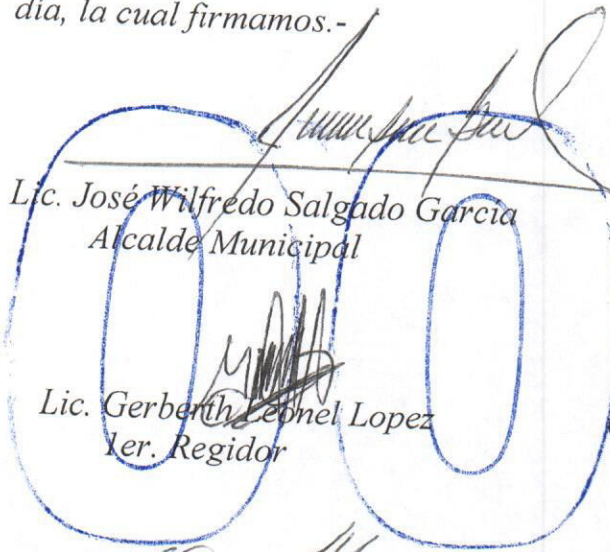 día, la cual firmamos.-
Lic. José Wilfredo Salgado García
Alcalde Municipal
Lic. Gerberth Leonel Lopez
1er. Regidor
00